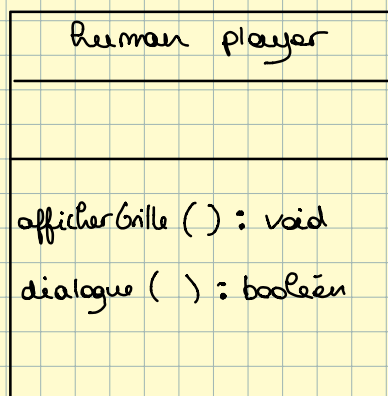 human player
afficherGrille ( ) : void
dialogue ( ) : booléen